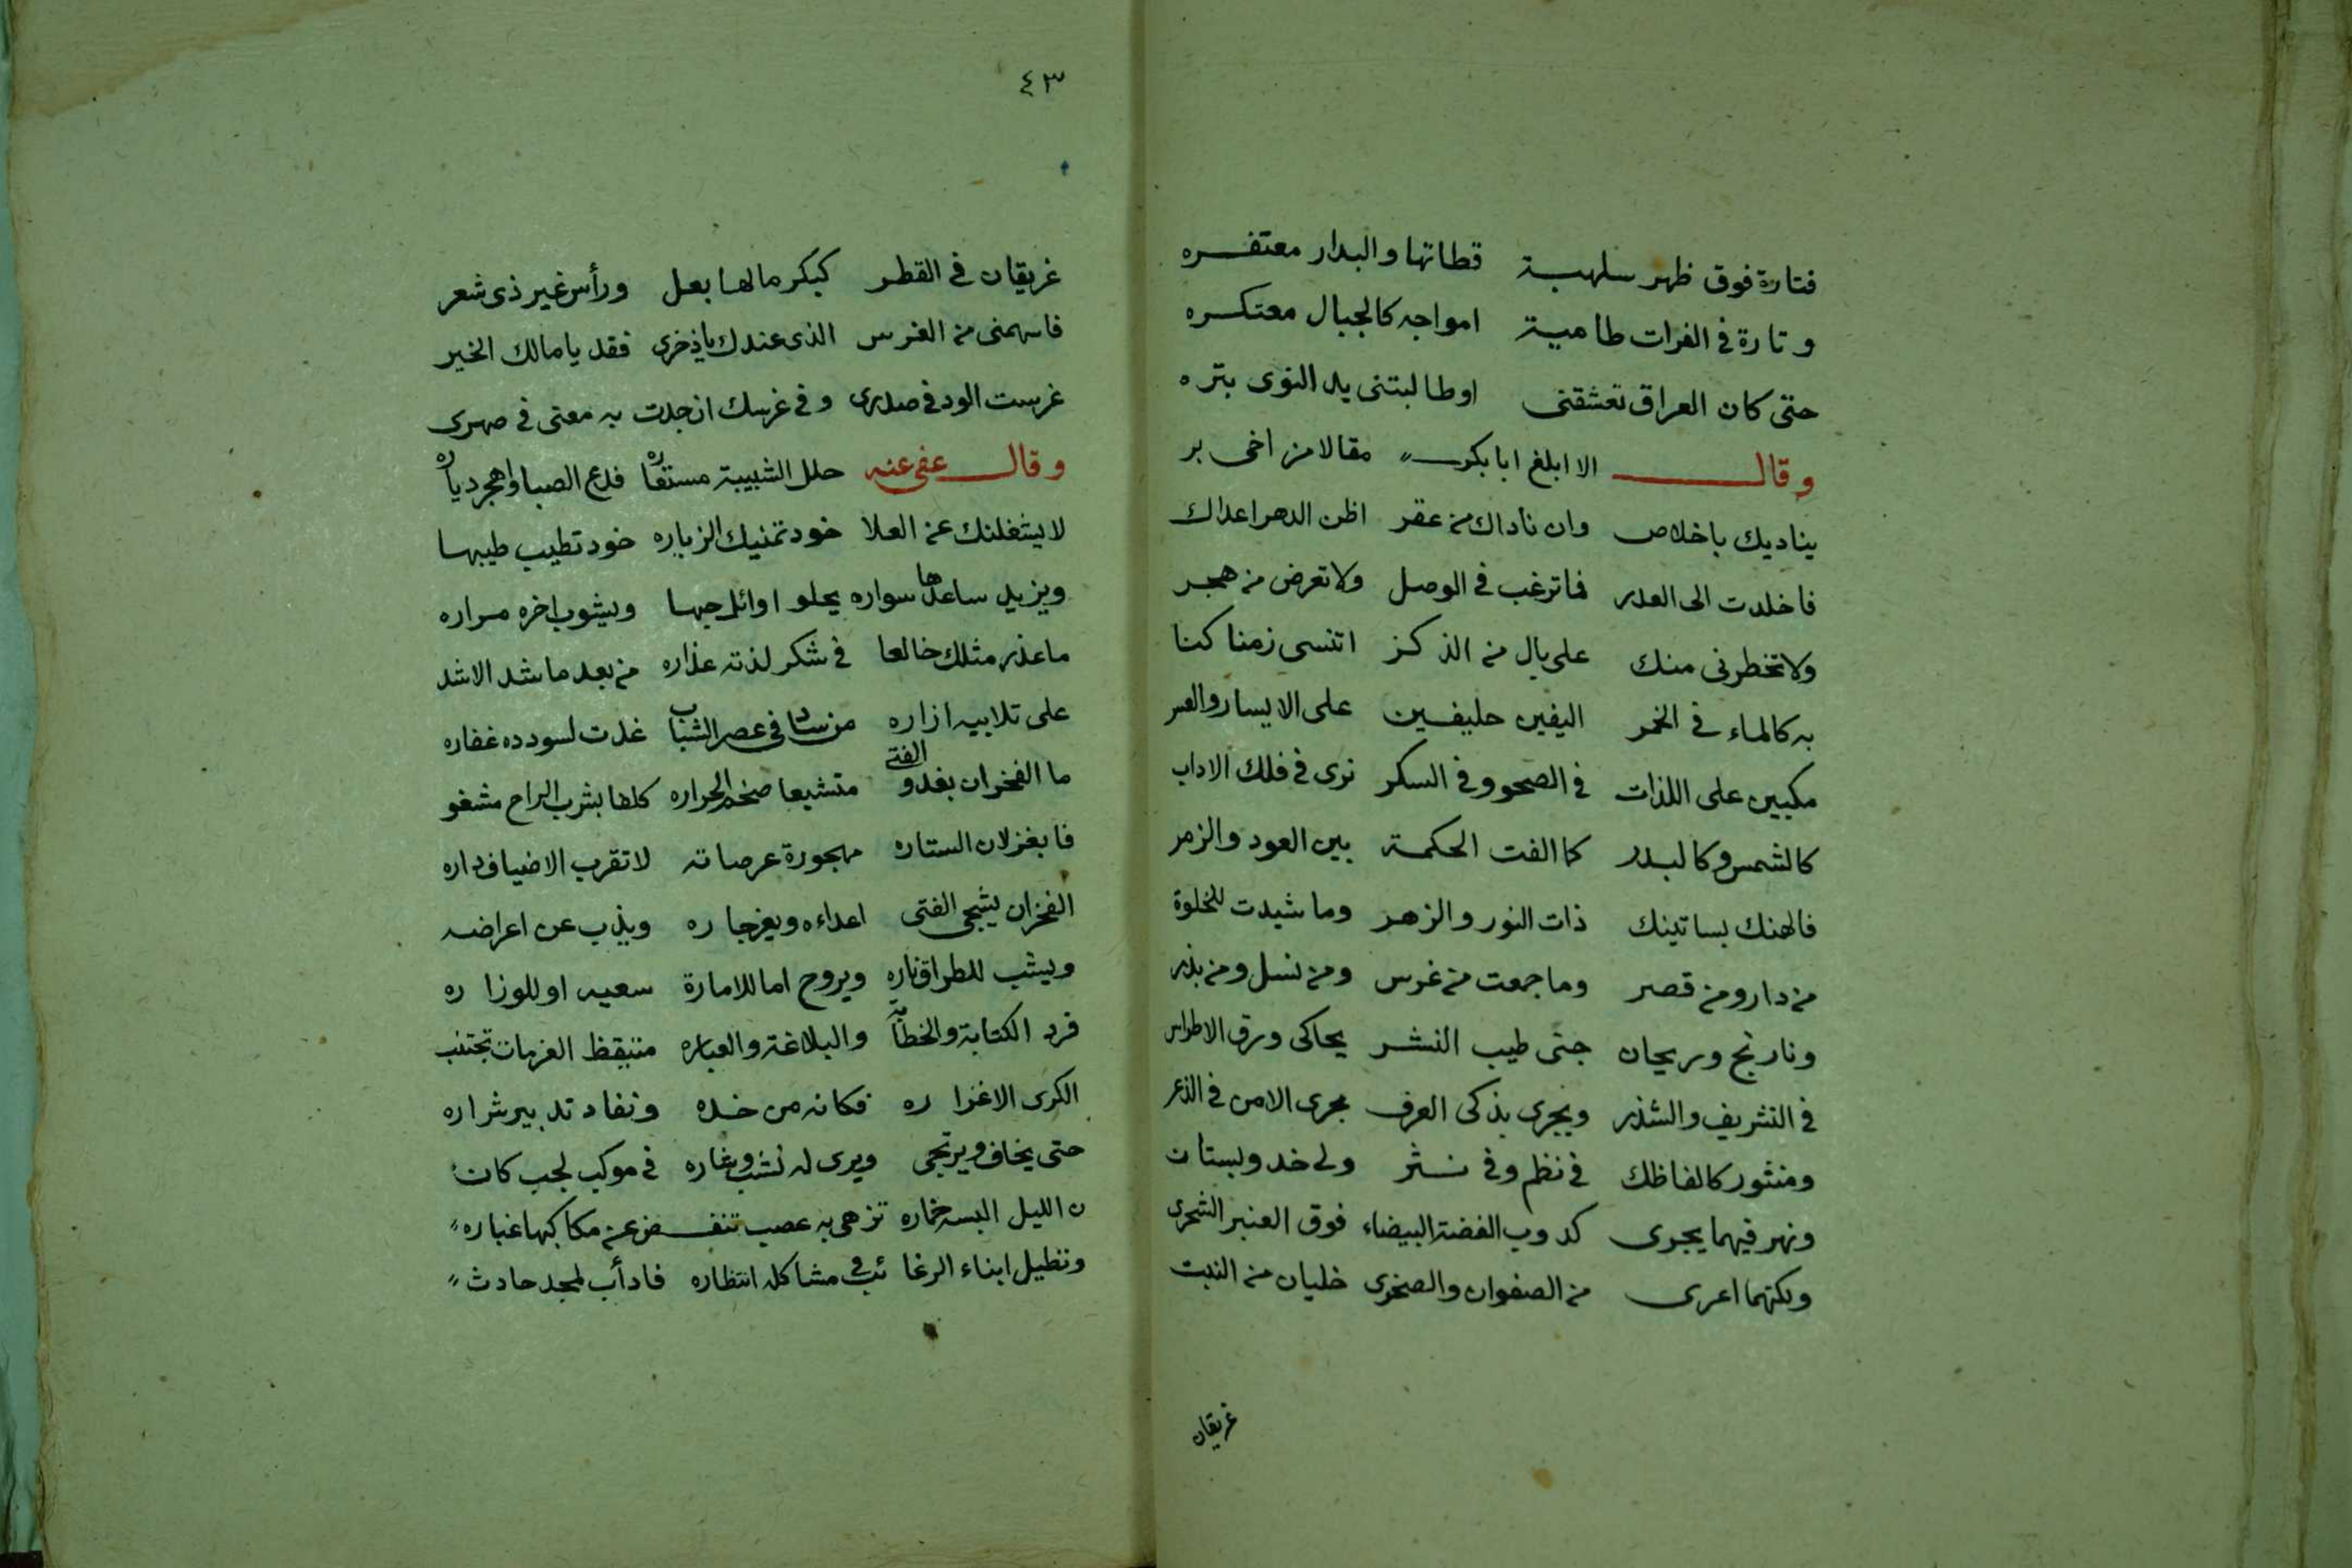 فتارة فوق ظهر سلهبة قطاتها والبدار معتفره
وتارة في الفرات طامية امواجه كالجبال معتكره
حتى كان العراق تعشقنى اوطالبتنى يد النوى بتره
وقال الا ابلغ ابابكر مقالا من اخى بر
يناديك باخلاص وان ناداك من عقر اظن الدهر اعداك
فاخلدت الى الغدر فما ترغب في الوصل ولا تعرض من هجر
ولا تخطرنى منك على بال من الذكر اتنسى زمنا كنا
به كالماء في الخمر اليفين حليفين على الايسار والعسر
مكبين على اللذات في الصحو وفي السكر نرى في فلك الاداب
كالشمس وكالبدر كما الفت الحكمة بين العود والزمر
فالهتك بساتينك ذات النور والزهر وما شيدت للخلوة
من دار ومن قصر وما جمعت من غرس ومن نسل ومن بذر
ونارنج وريحان جنى طيب النشر يحاكى ورق الاطراس
في التشريف والشذر ويجرى بذكى العرف مجرى الامن في الذعر
ومنثور كالفاظك في نظم وفي نثر ولى خد وبستان
ونهر فيهما يجرى كدوب الفضة البيضاء فوق العنبر الشحرى
ولكنهما اعرى من الصفوان والصخرى خليان من النبت
غريقان
٤٣
غريقان في القطر كبكر مالها بعل ورأس غير ذى شعر
فاسهمنى من الغرس الذى عندك ياذخرى فقد يا مالك الخير
غرست الود في صدرى وفي غرسك ان جدت به معنى في صهرى
وقال عفى عنه حلل الشبيبة مستعاره فدع الصبا واهجر دياره
لا يشغلنك عن العلا خود تمنيك الزياره خود تطيب طيبها
ويزين ساعدها سواره يحلو اوائل حبها ويشوب اخره مراره
ما عذر مثلك خالعا في شكر لذته عذاره من بعد ما شد الاشد
على تلابيه ازاره من ساد في عصر الشباب غدت لسودده غفاره
ما الفخر ان يغدو الفتى متشبعا ضخم الجراره كلفا بشرب الراح مشغو
فا بغزلان الستاره مهجورة عرصاته لا تقرب الاضياف داره
الفخر ان يشجى الفتى اعداءه ويعز جاره ويذب عن اعراضه
ويشب للطراق ناره ويروح اما للامارة سعيه او للوزاره
فرد الكتابة والخطابة والبلاغة والعباره متيقظ العزمات تجتنب
الكرى الا غراره فكانه من حده ونفاد تدبير شراره
حتى يخاف ويرتجى ويرى له نشب وغاره في موكب لجب كان
ن الليل البسه خماره تزهى به عصب تنفض عن مكاكبها غباره
وتطيل ابناء الرغائب في مشاكله انتظاره فادأب لمجد حادث